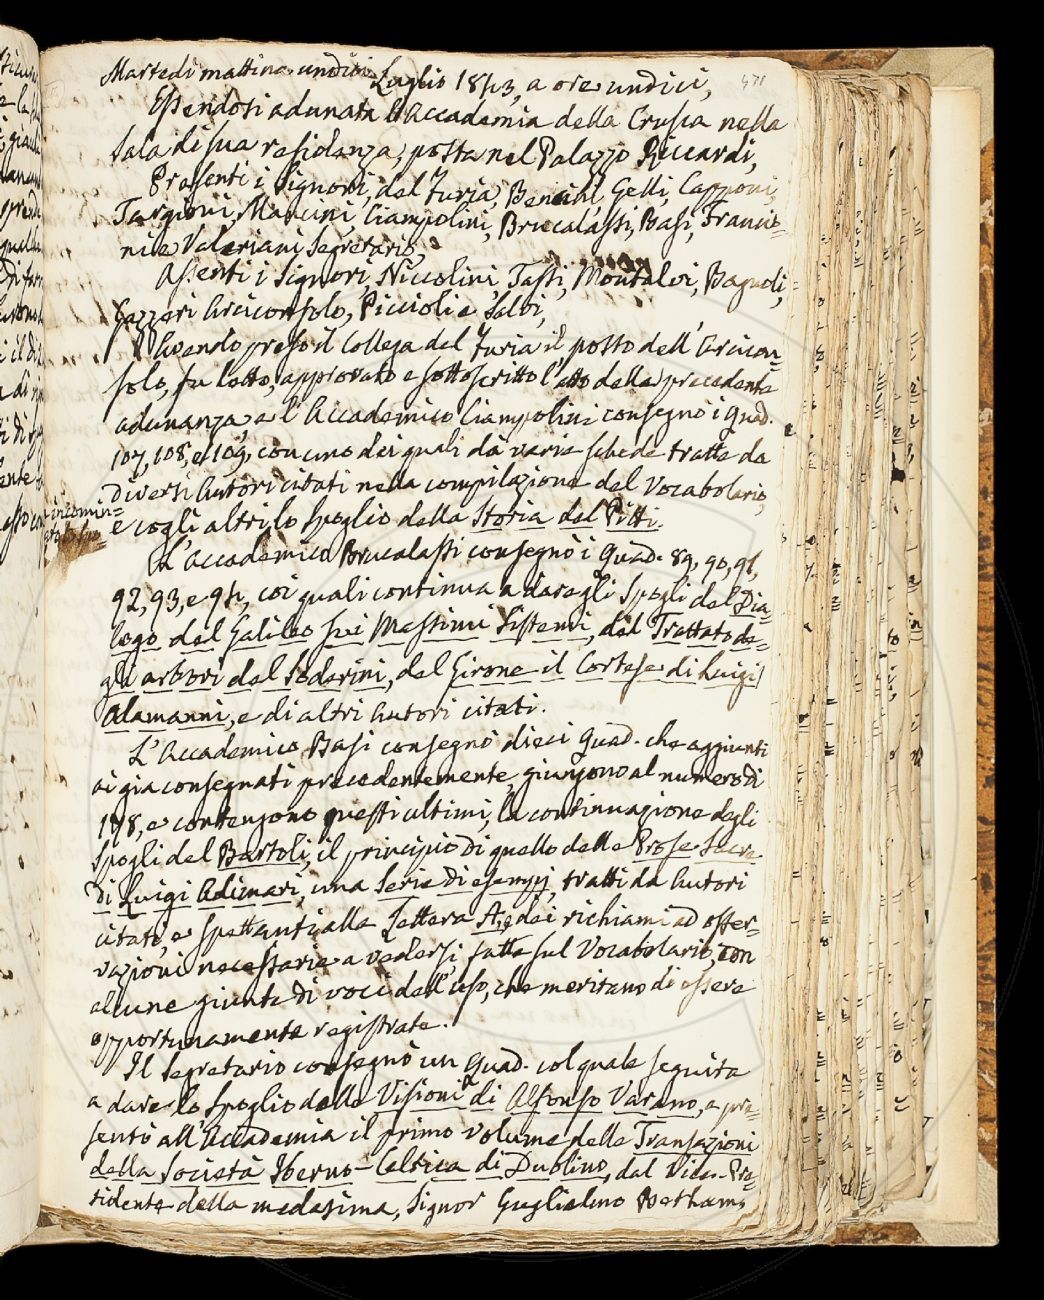 471
Martedì mattina undici Luglio 1843, a ore undici,
Essendosi adunata l'Accademia della Crusca nella
sala di sua residenza, posta nel Palazzo Riccardi,
Presenti i Signori, del Furia, Bencini, Gelli, Capponi,
Targioni, Mancini, Ciampolini, Brucalassi, Basi, Francio=
ni e Valeriani Segretario,
Assenti i Signori, Niccolini, Tassi, Montalvi, Bagnoli,
Lazzeri Arciconsolo, Piccioli e Salvi,
Avendo preso il Collega del Furia il posto dell'Arcicon=
solo, fu letto, approvato e sottoscritto l'atto della precedente
adunanza, e l'Accademico Ciampolini consegnò i Quad.
107, 108, e 109, con uno dei quali dà varie schede tratte da
diversi Autori citati nella compilazione del Vocabolario,
incomin=
e cogli altri lo Spoglio della Storia del Pitti.
L'Accademico Brucalassi consegnò i Quad. 89, 90, 91,
92, 93, e 94, coi quali continua a dare gli Spogli del Dia=
logo del Galileo sui Massimi Sistemi, del Trattato de=
gli arbori del Soderini, del Girone il Cortese di Luigi
Alamanni, e di altri Autori citati.
L'Accademico Basi consegnò dieci Quad. che aggiunti
ai già consegnati precedentemente, giungono al numero di
178, e contengono questi ultimi, la continuazione degli
Spogli del Bartoli, il principio di quello delle Prose Sacre
di Luigi Adimari, una serie di esempj, tratti da Autori
citati, e spettanti alla Lettera A, e dei richiami ad osser=
vazioni necessarie a vedersi, fatte sul Vocabolario, con
alcune giunte di voci dell'uso, che meritano di essere
opportunamente registrate.
Il Segretario consegnò un Quad. col quale seguita
a dare lo Spoglio delle Visioni di Alfonso Varano, e pre=
sentò all'Accademia il primo volume delle Transazioni
della Società Iberno-Celtica di Dublino, dal Vice-Pre=
sidente della medesima, Signor Guglielmo Betham,